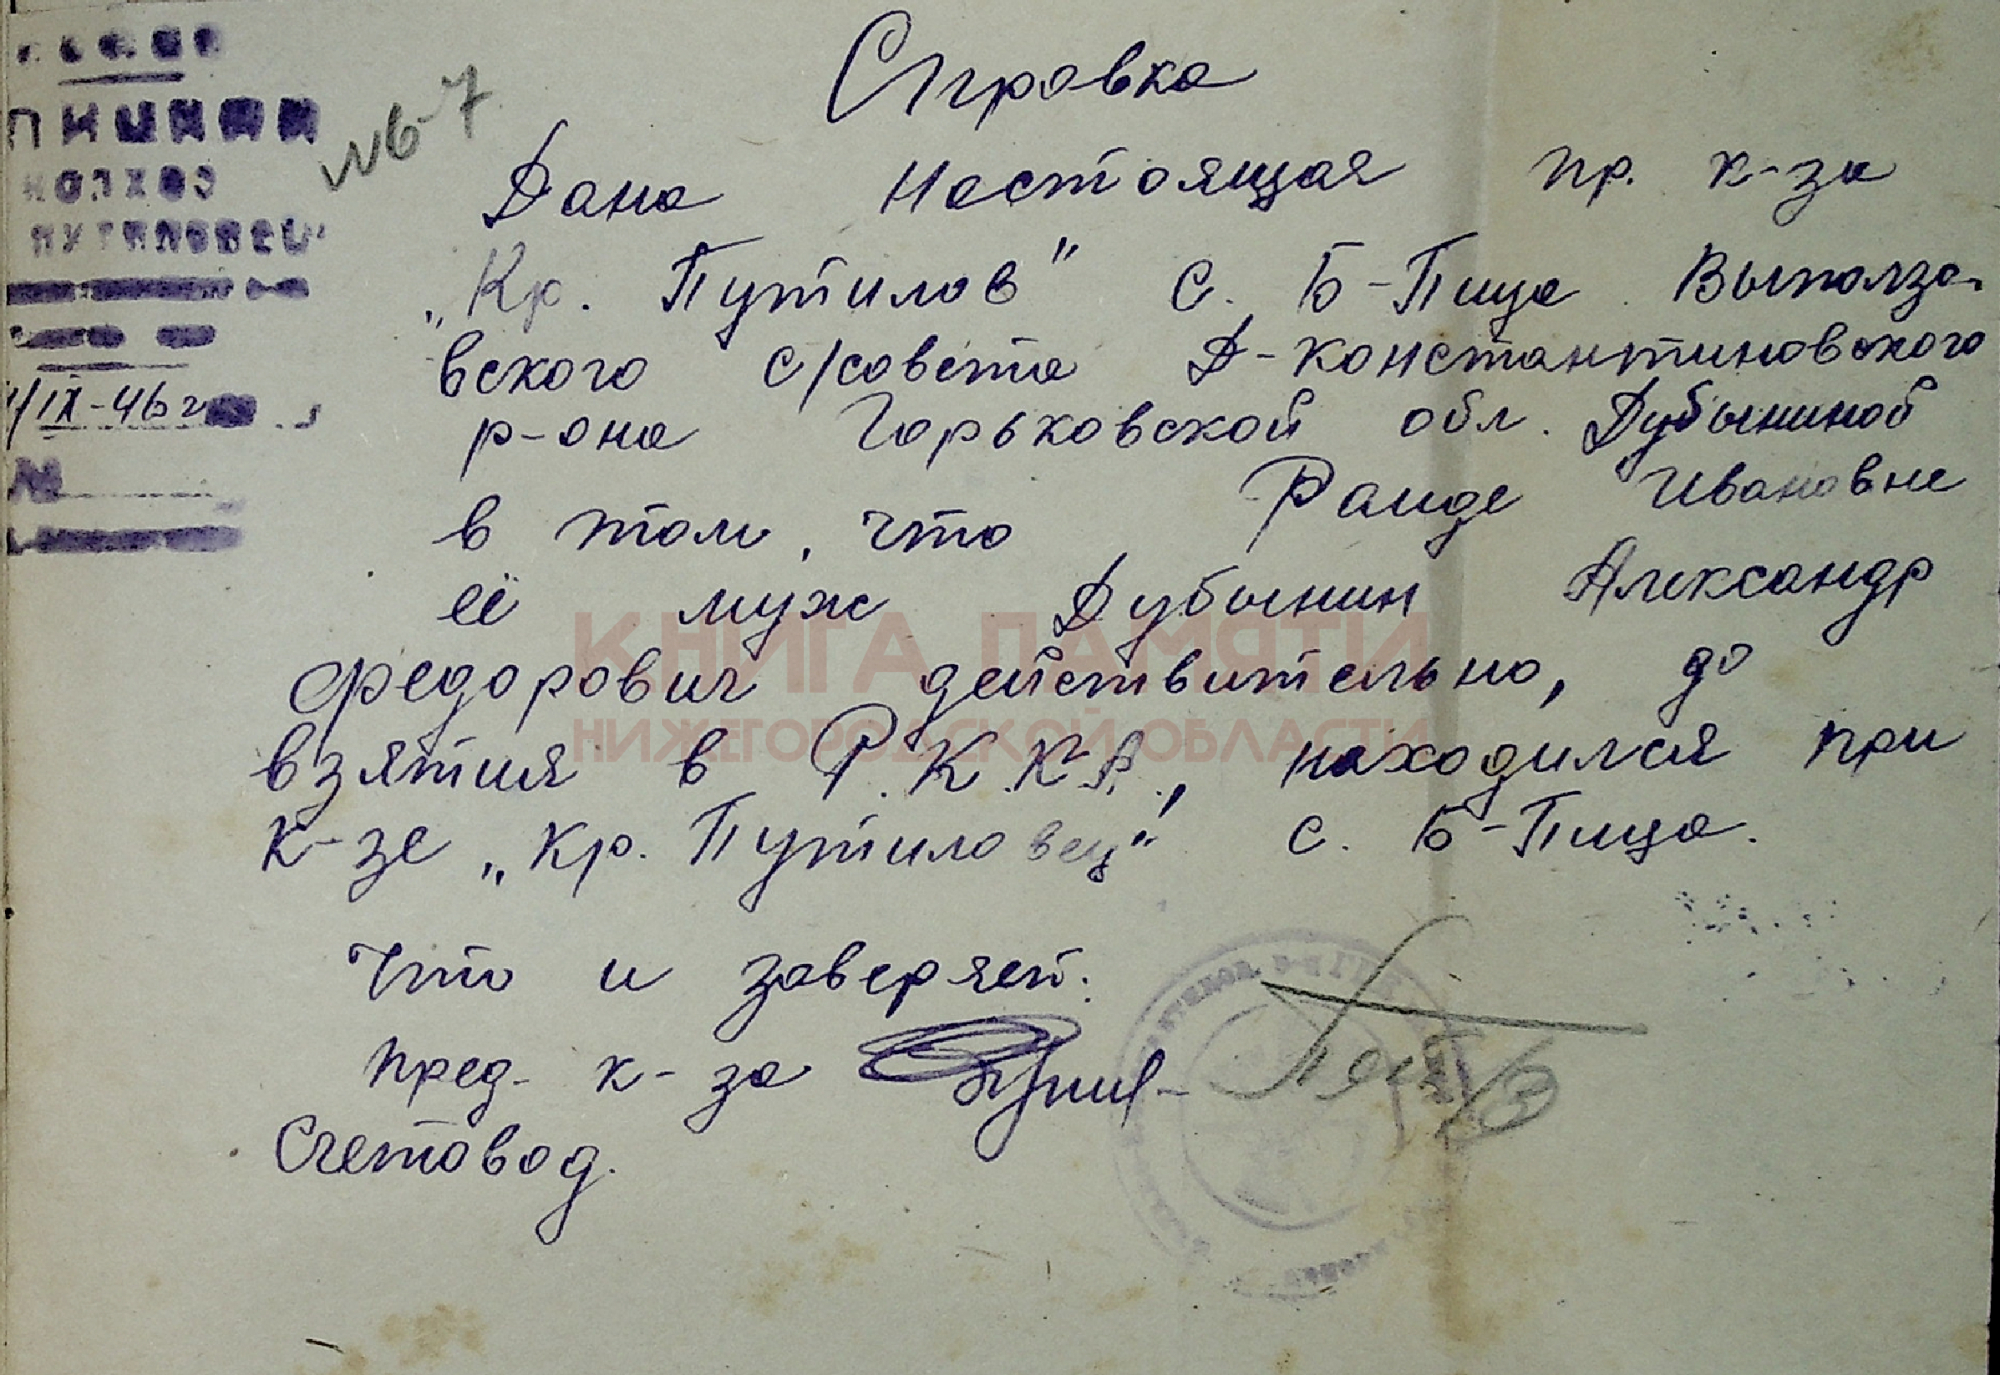 Справка
№ 6-7
ПИЦКИЙ
КОЛХОЗ
ПУТИЛОВЕЦ"
/IX-46 г
№
Дана настоящая пр. к-за
„Кр. Путилов" с. Б-Пица Выползо-
вского с/совета Д-Константиновского
р-она Горьковской обл. Дубыниной
Раиде Ивановне
в том, что
её муж Дубынин Александр
Федорович действительно, до
взятия в Р.К.К.А., находился при
к-зе „Кр. Путиловец" с. Б-Пица.
Что и заверяет.
Пред. к-за
Счетовод.
КНИГА ПАМЯТИ
НИЖЕГОРОДСКОЙ ОБЛАСТИ